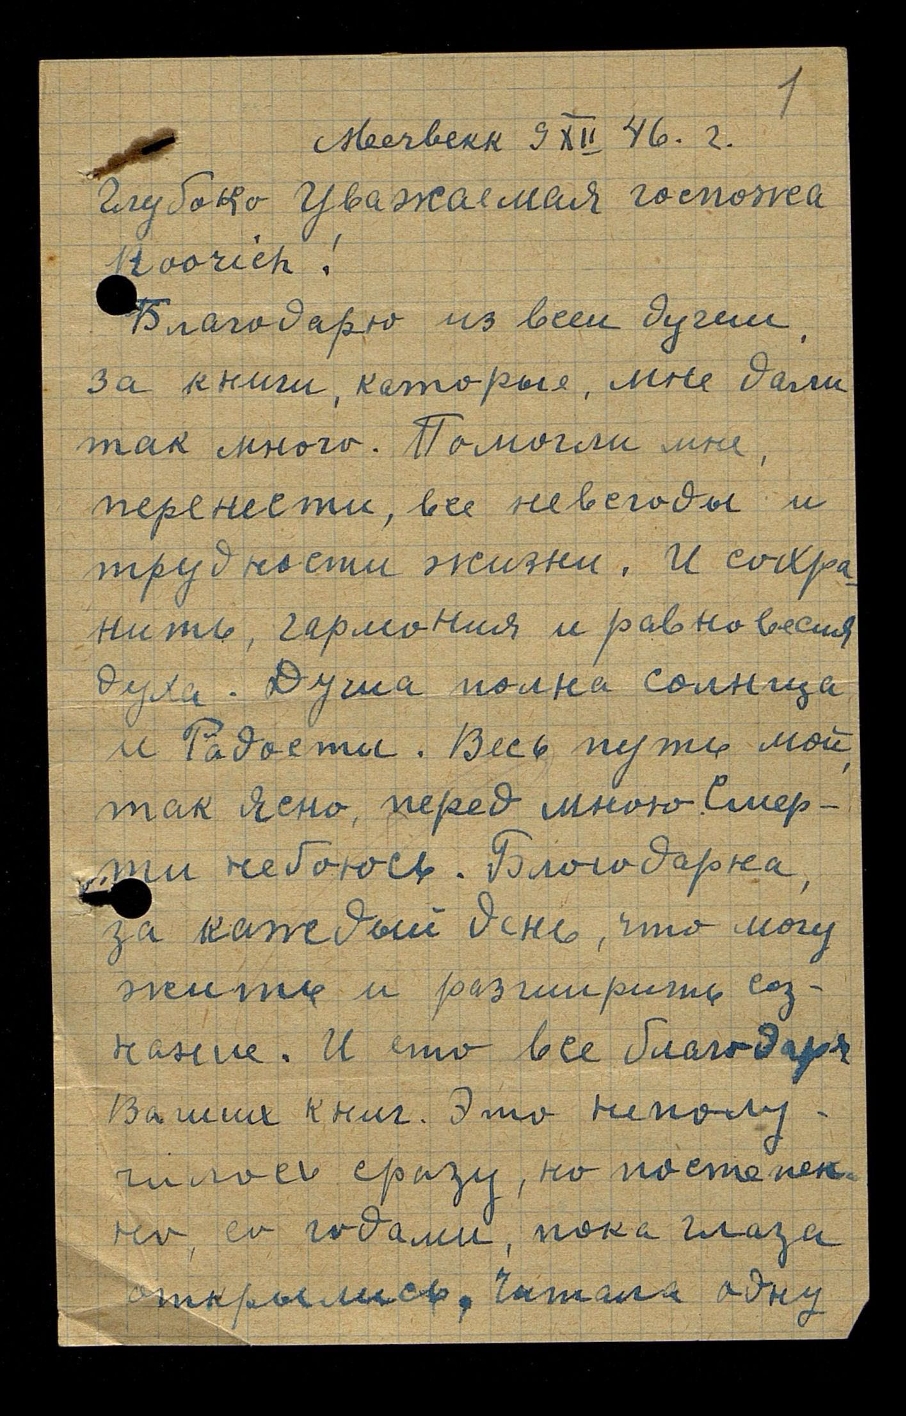 1
Меервекк 9 XII 46. г.
Глубоко Уважаемая госпожа
Roorich!
Благодарю из всеи души,
за книги, каторые, мне дали
так много. Помогли мне,
перенести, все невсгоды и
трудности жизни. И сохра-
нить, гармония и равновесия
духа. Душа полна солнца
и Радости. Весь путь мой,
так ясно, перед мною. Смер-
ти небоюсь. Блогодарна,
за каждый день, что могу
жить и разширить соз-
нание. И ето все благодаря
Ваших книг. Это неполу-
чилось сразу, но постепен-
но, со годами, пока глаза
открылись. Читала одну